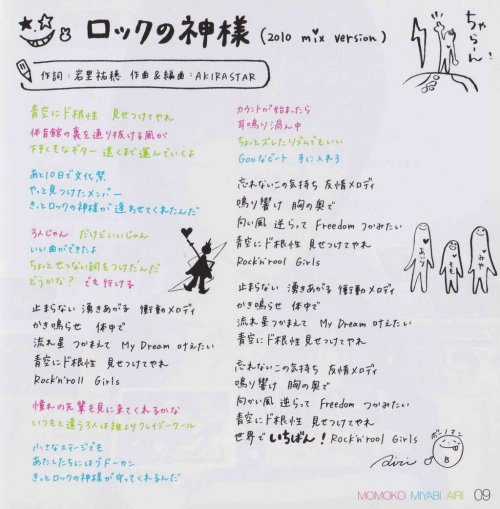 ロックの神様 (2010 mix version)
ちゃらーん!
作詞:岩里祐穂 作曲&編曲:AKIRASTAR
青空にド根性 見せつけてやれ
体育館の裏を通り抜ける風が
下手くそなギター 遠くまで運んでいくよ
あと10日で文化祭
やっと見つけたメンバー
きっとロックの神様が 逢わせてくれたんだ
3人じゃん だけどいいじゃん
いい曲ができたよ
ちょっとせつない詞をつけたんだ
どうかな? でも行ける
止まらない 湧きあがる 衝動メロディ
かき鳴らせ 体中で
流れ星 つかまえて My Dream 叶えたい
青空にド根性 見せつけてやれ
Rock'n'roll Girls
憧れの先輩も見に来てくれるかな
いつもと違う3人は誰よりクレイジークール
小さなステージでも
あたしたちにはブドーカン
きっとロックの神様が守ってくれるんだ
カウントが始まったら
耳鳴り渦ん中
ちょっとズレたリズムでもいい
Gooなビート 手に入れろ
忘れないこの気持ち 友情メロディ
鳴り響け 胸の奥で
向い風 逆らって Freedom つかみたい
青空にド根性 見せつけてやれ
Rock'n'rool Girls
止まらない 湧きあがる 衝動メロディ
かき鳴らせ 体中で
流れ星 つかまえて My Dream 叶えたい
青空にド根性 見せつけてやれ
Rock'n'rool Girls
忘れないこの気持ち 友情メロディ
鳴り響け 胸の奥で
向かい風 逆らって Freedom つかみたい
青空にド根性 見せつけてやれ
世界でいちばん! Rock'n'rool Girls
Airi
MOMOKO MIYABI AIRI 09